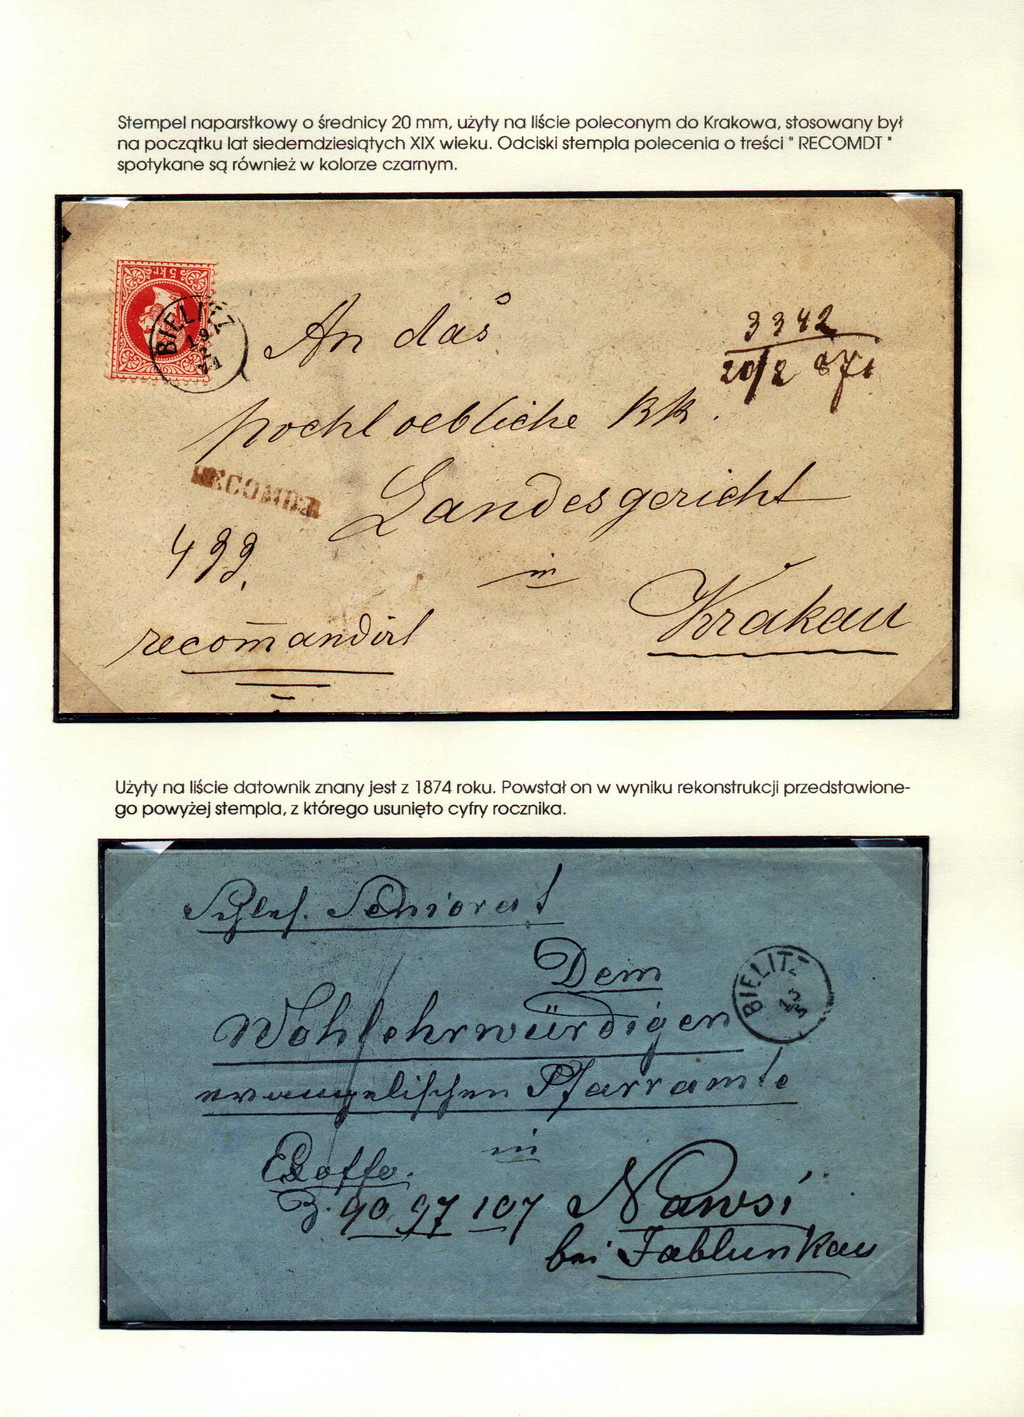 Stempel naparstkowy o średnicy 20 mm, użyty na liście poleconym do Krakowa, stosowany był
na początku lat siedemdziesiątych XIX wieku. Odciski stempla polecenia o treści " RECOMDT "
spotykane są również w kolorze czarnym.
5 kr
BIELITZ
19
2
71
An das
3342
20/2 871
hochloebliche kk.
RECOMDT
Landesgericht
499.
in
Krakau
recomandirt
Użyty na liście datownik znany jest z 1874 roku. Powstał on w wyniku rekonstrukcji przedstawione-
go powyżej stempla, z którego usunięto cyfry rocznika.
Schles. Seniorat
Dem
BIELITZ
13
5
Wohlehrwürdigen
evangelischen Pfarramte
in
Exoffo.
Z. 90 97 107 Nawsi
bei Jablunkau